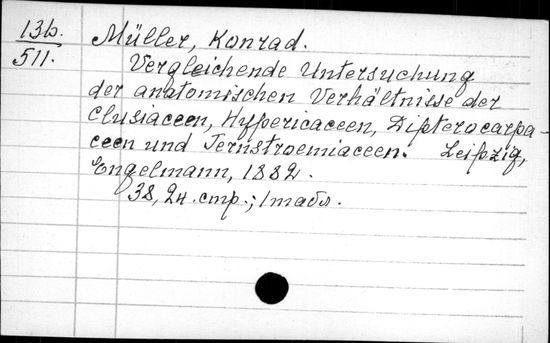 13b.
511.
Müller, Konrad.
Vergleichende Untersuchung
der anatomischen Verhältnisse der
Clusiaceen, Hypericaceen, Dipterocarpa-
ceen und Ternstroemiaceen. Leipzig,
Engelmann, 1882.
38, 24. стр.;